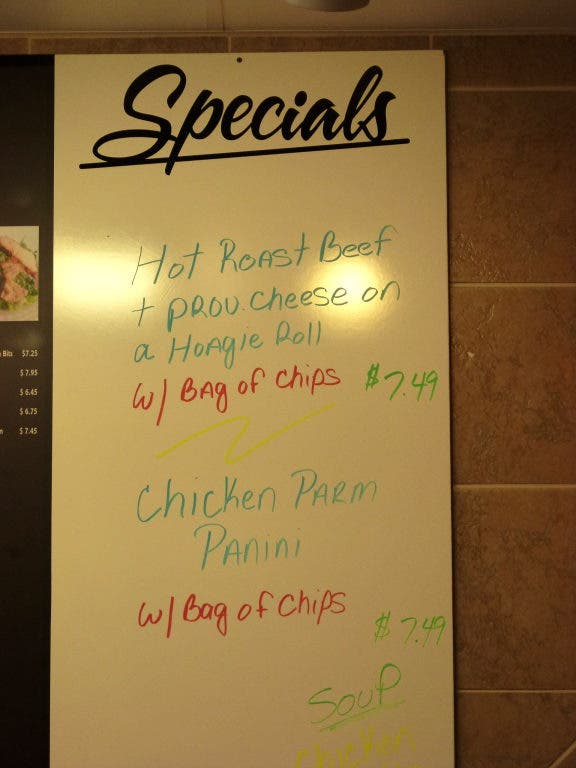 Specials
Hot Roast Beef
+ Prov. Cheese on
a Hoagie Roll
w/ Bag of Chips $7.49
Chicken Parm
Panini
w/ Bag of Chips
$7.49
Soup
Chicken
$7.25
$7.95
$6.45
$6.75
$7.45